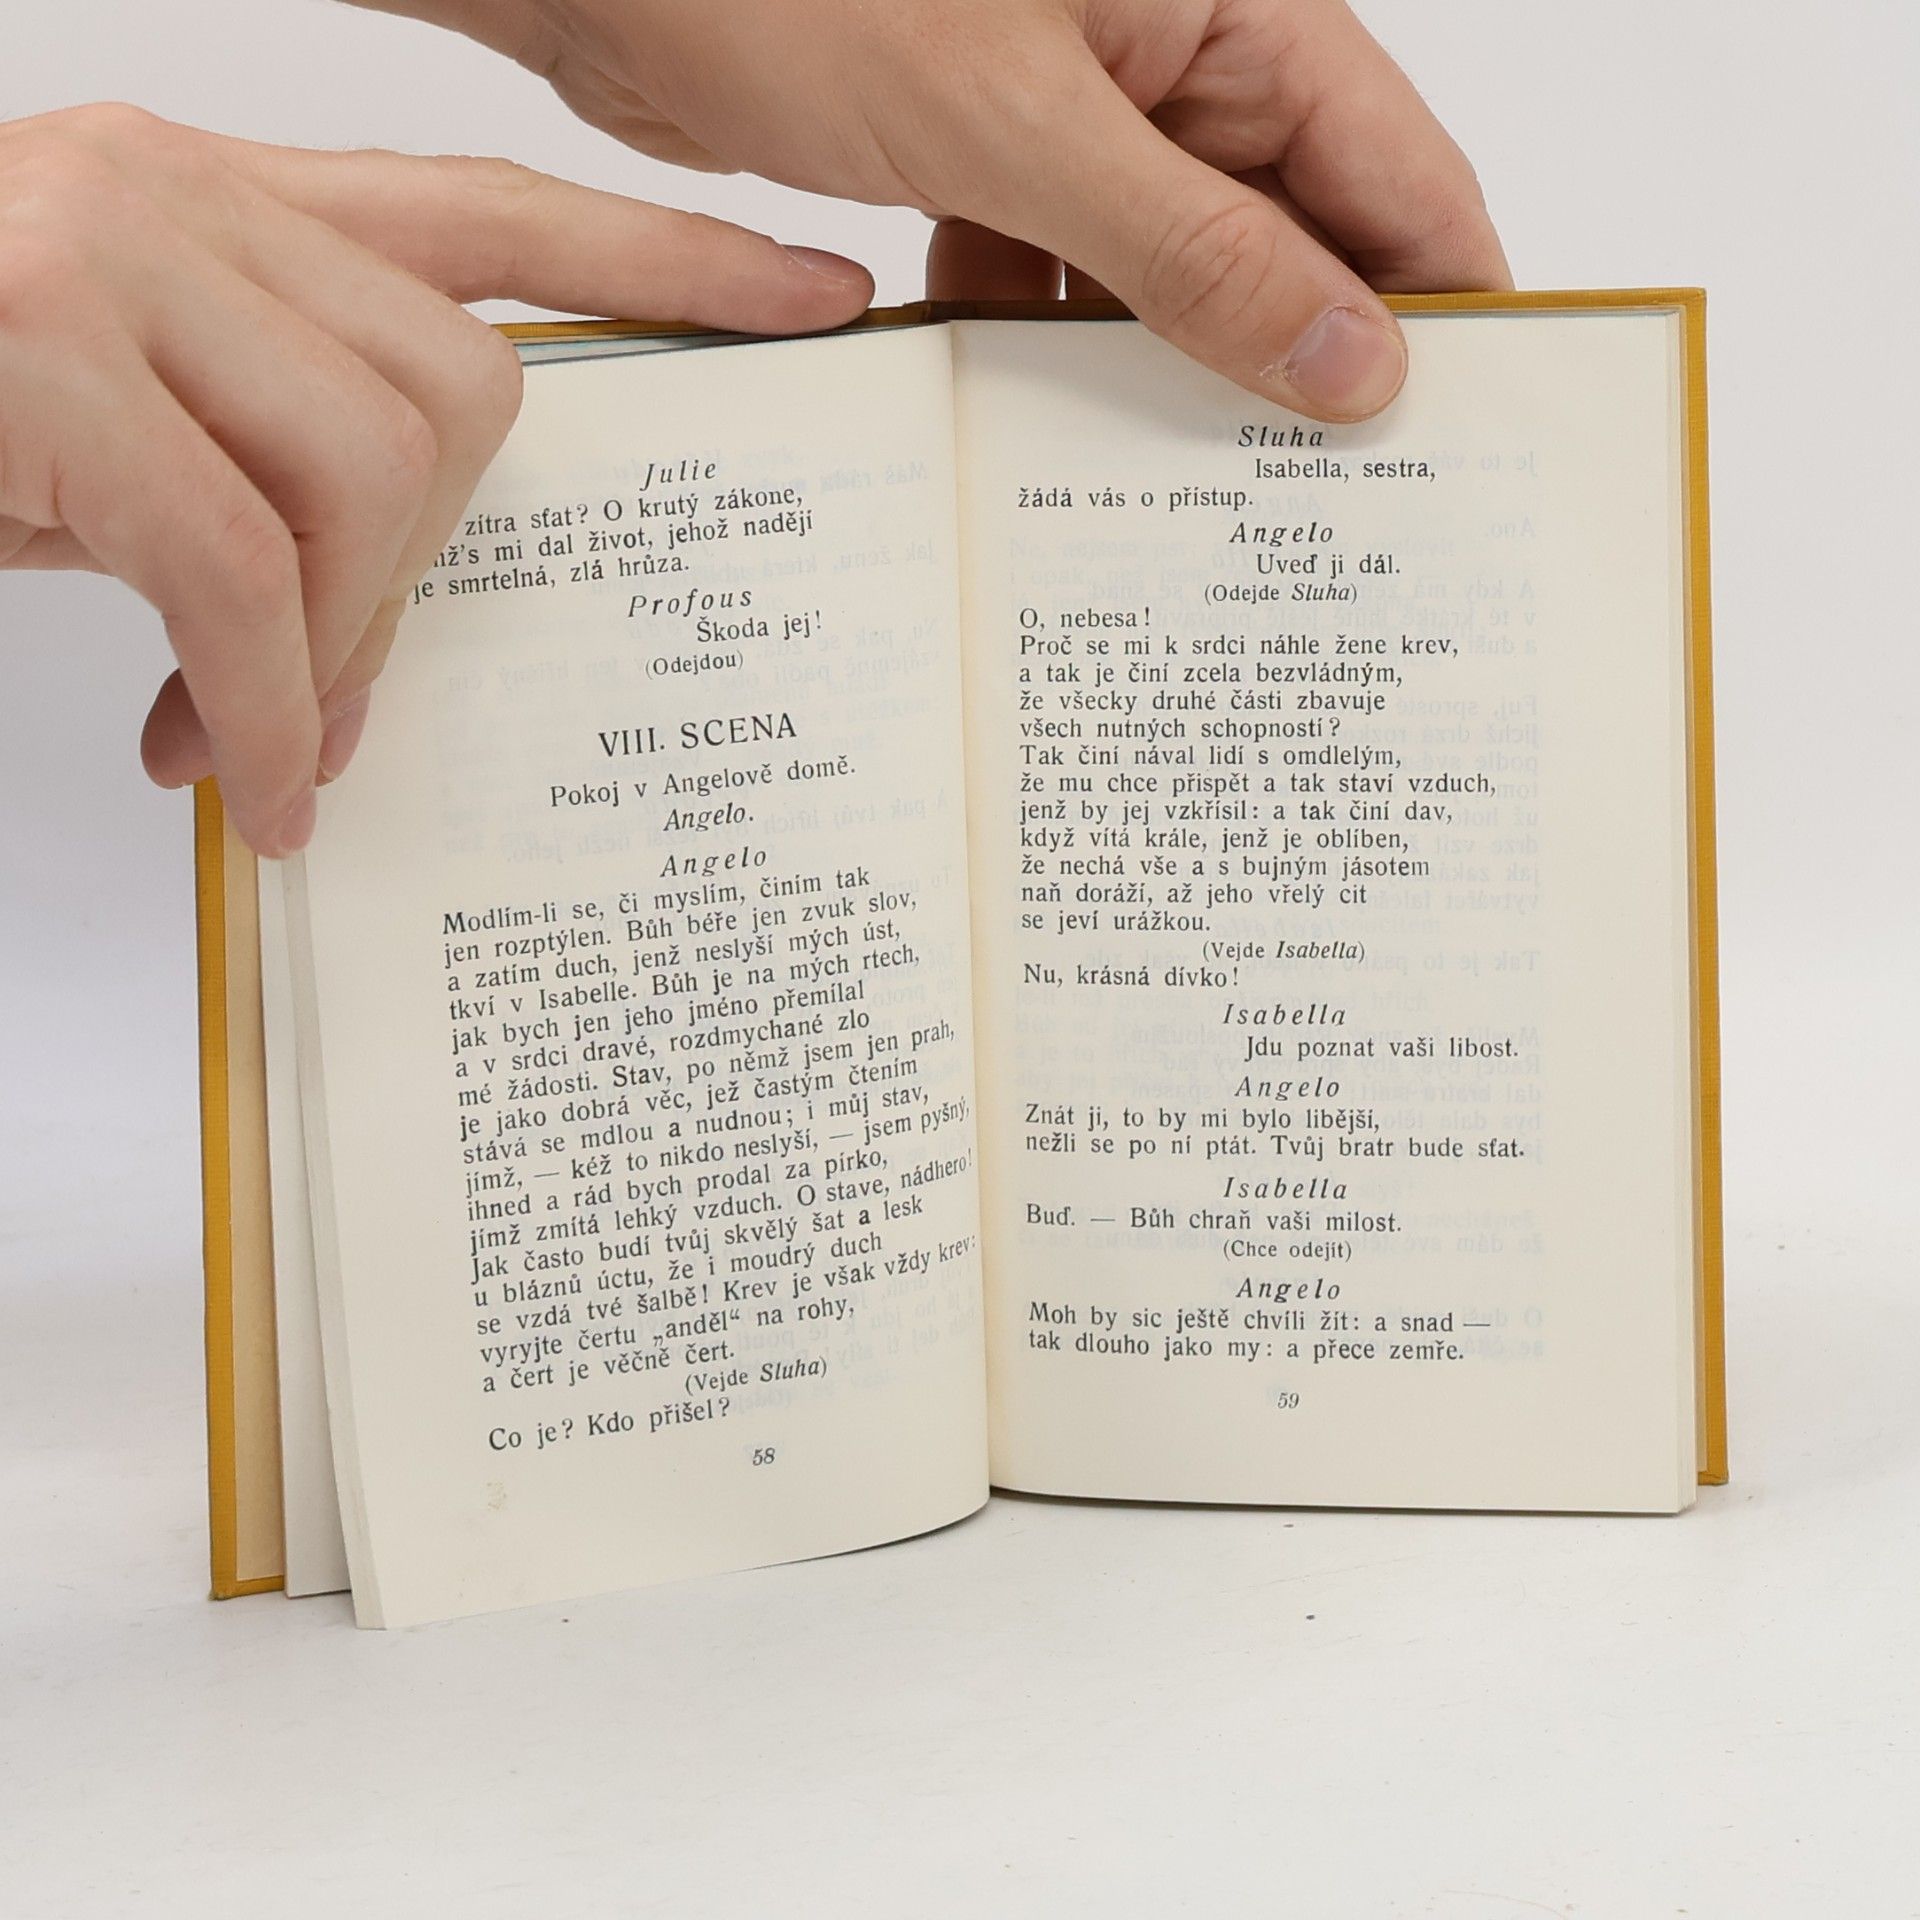 Julie
zítra sťat? O krutý zákone,
mi dal život, jehož nadějí
je smrtelná, zlá hrůza.
Profous
Škoda jej!
(Odejdou)
VIII. SCENA
Pokoj v Angelově domě.
Angelo.
Angelo
Modlím-li se, či myslím, činím tak
jen rozptýlen. Bůh béře jen zvuk slov,
a zatím duch, jenž neslyší mých úst,
tkví v Isabelle. Bůh je na mých rtech,
jak bych jen jeho jméno přemílal
a v srdci dravé, rozdmychané zlo
mé žádosti. Stav, po němž jsem jen prah,
je jako dobrá věc, jež častým čtením
stává se mdlou a nudnou; i můj stav,
jímž, — kéž to nikdo neslyší, — jsem pyšný,
ihned a rád bych prodal za pírko,
jímž zmítá lehký vzduch. O stave, nádhero!
Jak často budí tvůj skvělý šat a lesk
u bláznů úctu, že i moudrý duch
se vzdá tvé šalbě! Krev je však vždy krev:
vyryjte čertu „anděl“ na rohy,
a čert je věčně čert.
(Vejde Sluha)
Co je? Kdo přišel?
58
Sluha
Isabella, sestra,
žádá vás o přístup.
Angelo
Uveď ji dál.
(Odejde Sluha)
O, nebesa!
Proč se mi k srdci náhle žene krev,
a tak je činí zcela bezvládným,
že všecky druhé části zbavuje
všech nutných schopností?
Tak činí nával lidí s omdlelým,
že mu chce přispět a tak staví vzduch,
jenž by jej vzkřísil: a tak činí dav,
když vítá krále, jenž je oblíben,
že nechá vše a s bujným jásotem
naň doráží, až jeho vřelý cit
se jeví urážkou.
(Vejde Isabella)
Nu, krásná dívko!
Isabella
Jdu poznat vaši libost.
Angelo
Znát ji, to by mi bylo libější,
nežli se po ní ptát. Tvůj bratr bude sťat.
Isabella
Buď. — Bůh chraň vaši milost.
(Chce odejít)
Angelo
Moh by sic ještě chvíli žít: a snad —
tak dlouho jako my: a přece zemře.
59